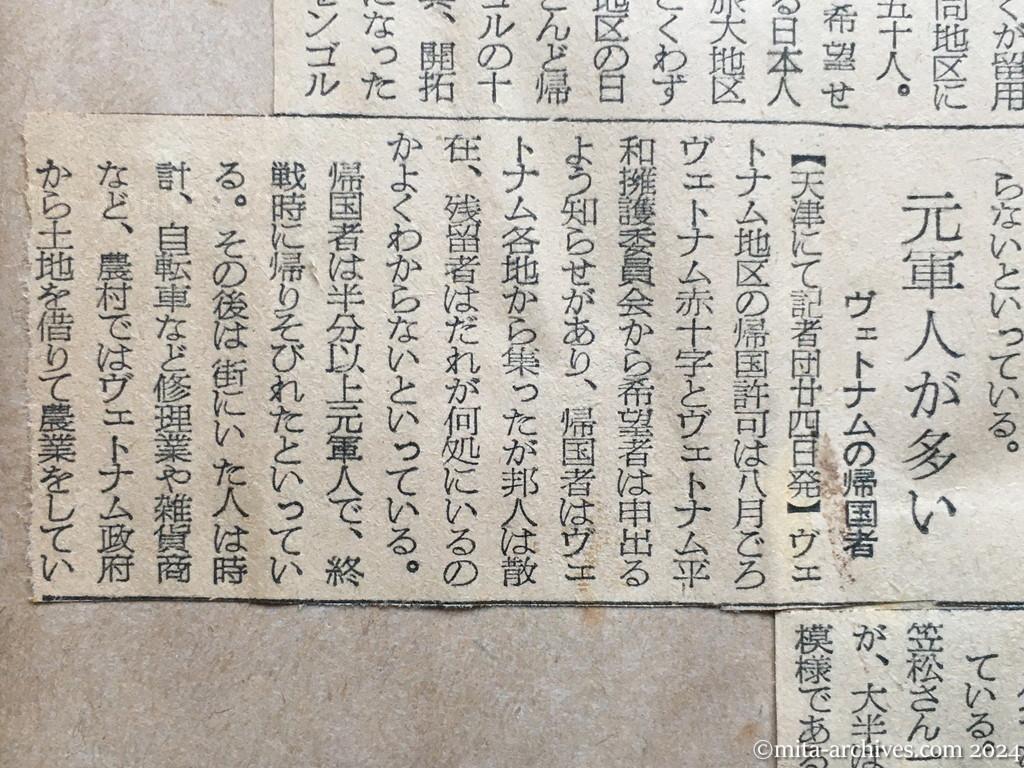 くが留用
同地区に
五十人。
希望せ
る日本人
旅大地区
ごくわず
地区の日
とんど帰
ゴルの十
、開拓
になった
モンゴル
らないといっている。
元軍人が多い
ヴェトナムの帰国者
【天津にて記者団廿四日発】ヴェ
トナム地区の帰国許可は八月ごろ
ヴェトナム赤十字とヴェトナム平
和擁護委員会から希望者は申出る
よう知らせがあり、帰国者はヴェ
トナム各地から集ったが邦人は散
在、残留者はだれが何処にいるの
かよくわからないといっている。
帰国者は半分以上元軍人で、終
戦時に帰りそびれたといってい
る。その後は街にいた人は時
計、自転車など修理業や雑貨商
など、農村ではヴェトナム政府
から土地を借りて農業をしてい
ている
笠松さん一
が、大半は
模様である
©mita-archives.com 2024